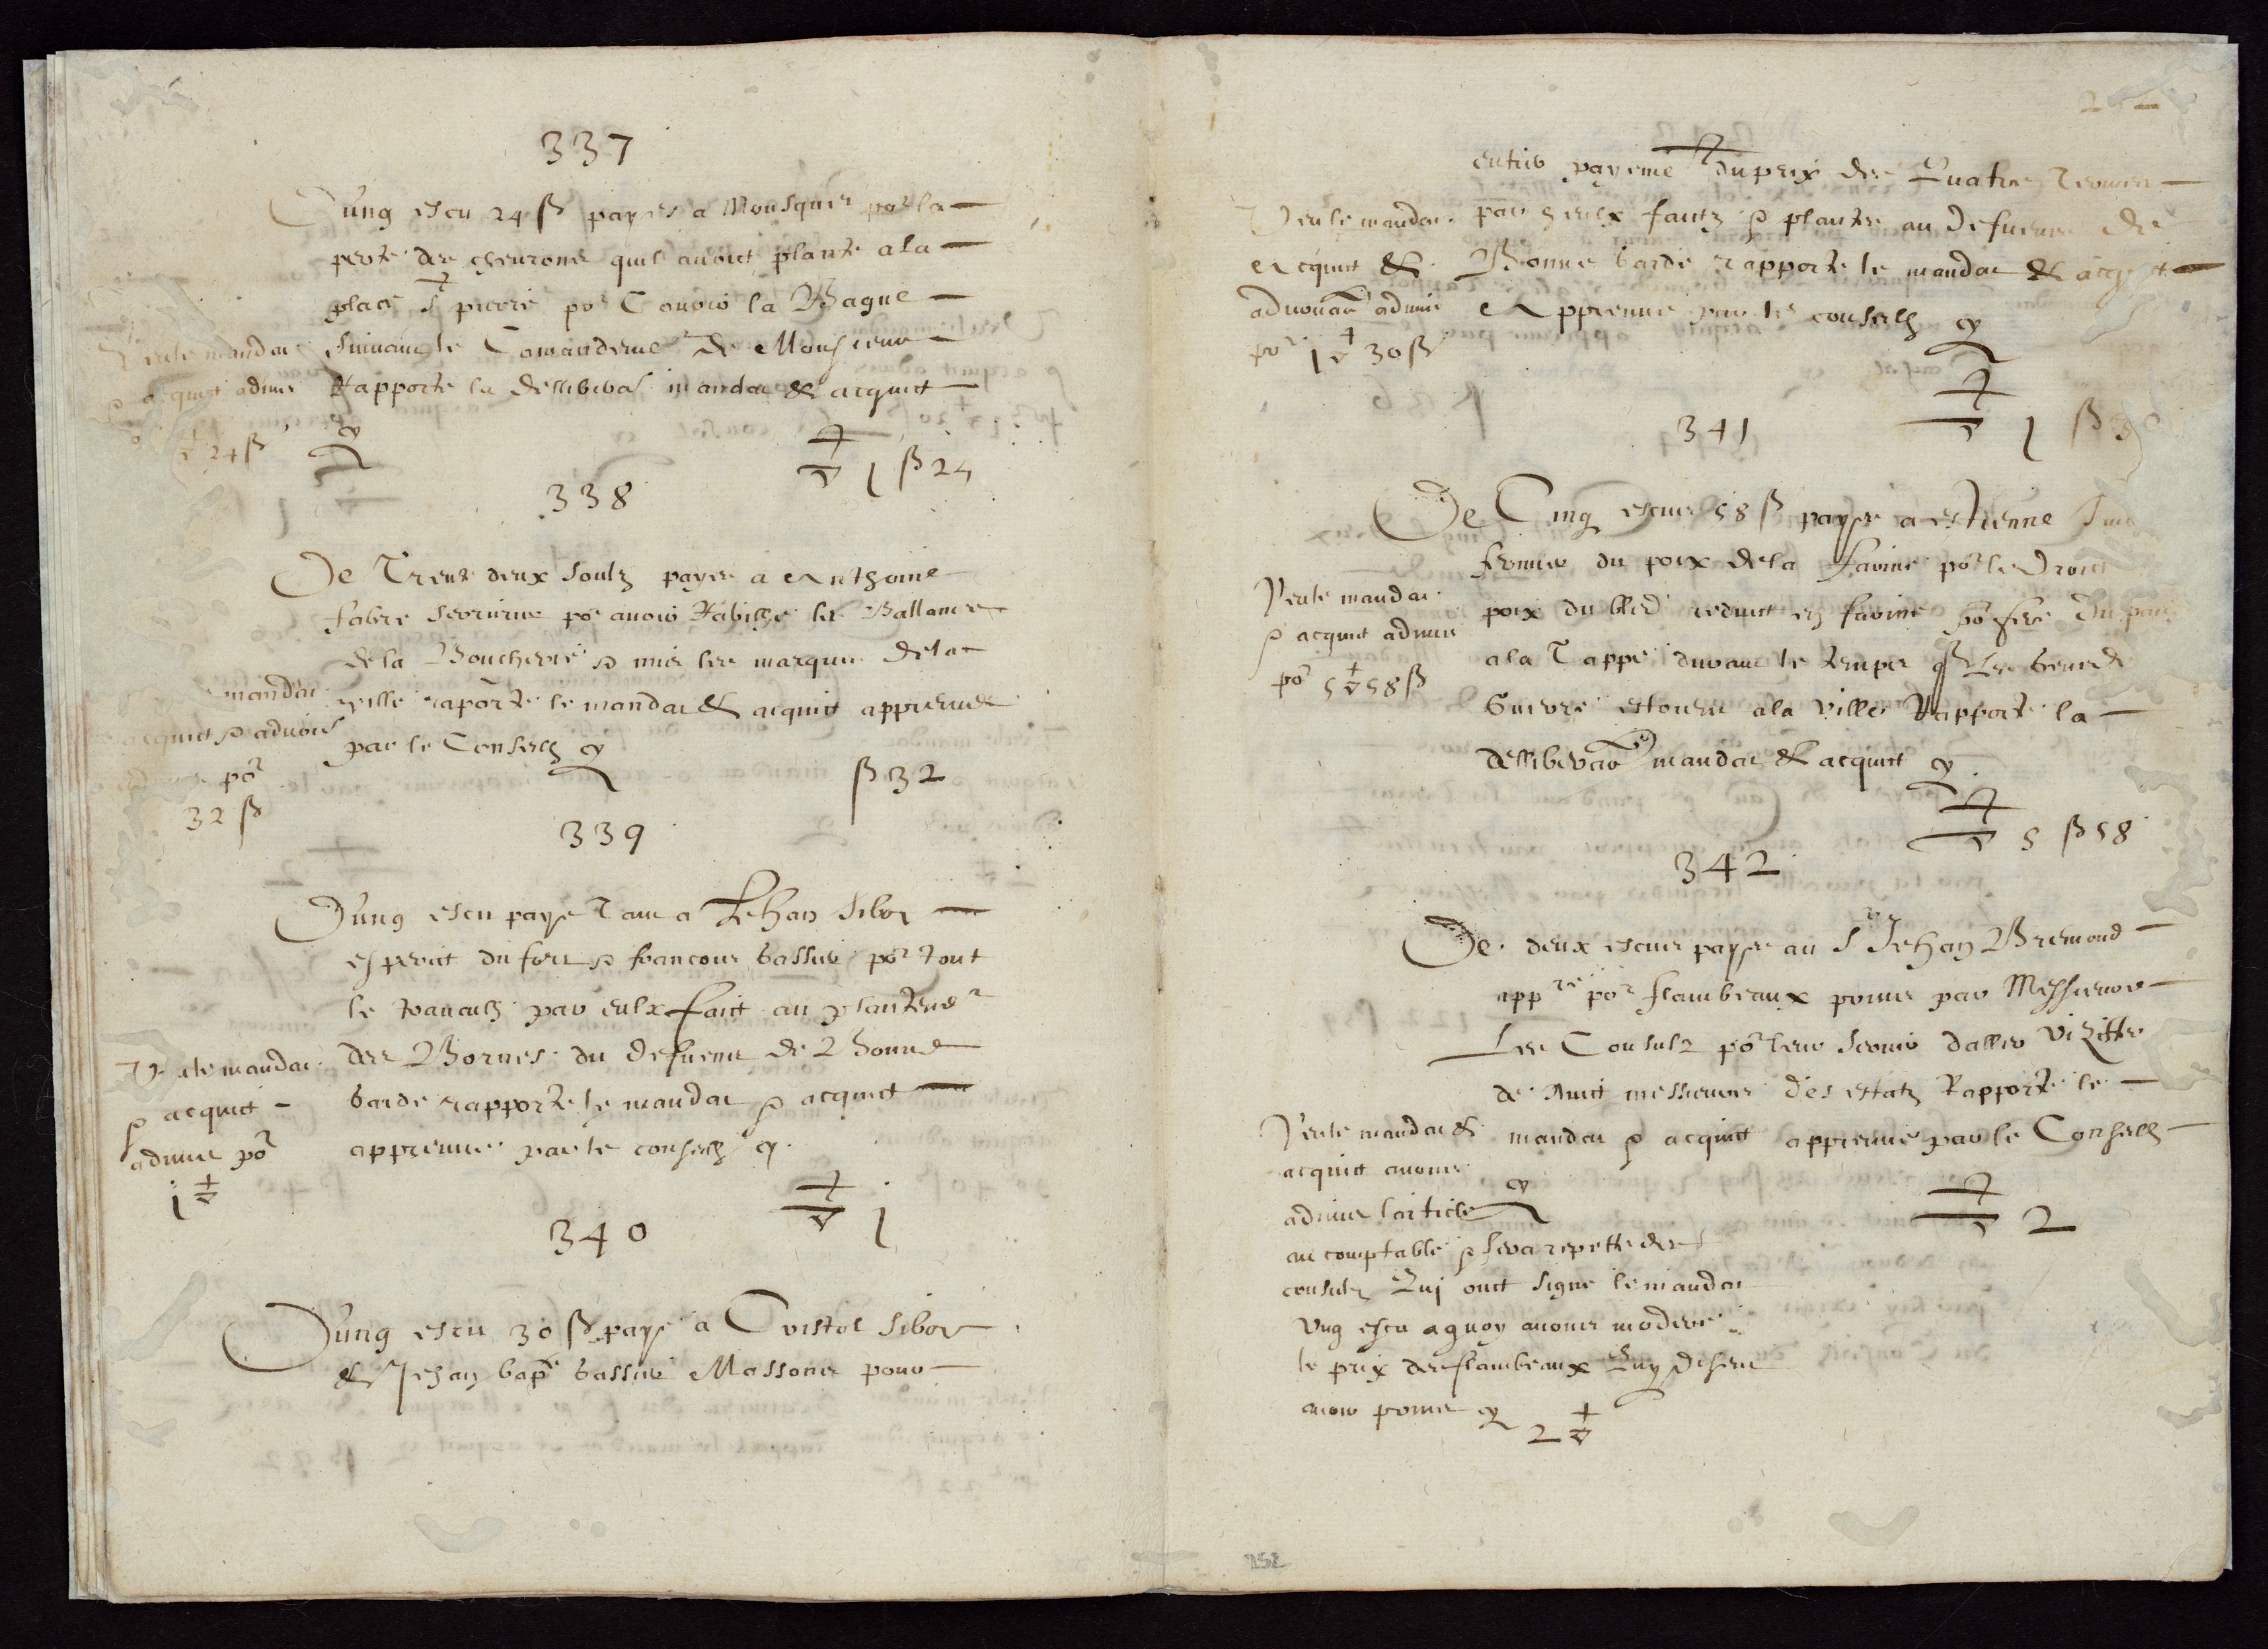 337
Dung escu 24 ß payes a Mousquet por la
perte des chevrons quil avoict plante a la
place St pierre por Couvrir la Bague
suivant le Comandemet de Monsieur
Rapporte la delliberaõn mandat & acquict
cy
Veu le mandat
& acquict admis
24 ß
1 ß 24
338
De Trente deux soulz payes a Anthoine
fabre serrurier por avoir Habilhe les Ballances
de la Boucherie & mis les marques de la
ville raporte le mandat & acquict appreuve
par le Conselh cy
mandat
acquict & advoue
por
32 ß
ß 32
339
Dung escu paye tant a Jehan Sibot
esperit du fort & francoys bassier por tout
le travailh par eulx faict au plantemet
des Bornes du defens de Bonne
garde rapporte le mandat & acquict
appreuve par le conselh cy
Veu le mandat
& acquict
admis por
1
1
340
Dung escu 30 ß paye a Cristol Sibot
& Jehan bapte bassier Massons pour
entier payemet du prix des Quatre termes
par eulx faitz & plantes au defens de
Bonne garde rapporte le mandat & acquict
Appreuve par le conselh cy
Veu le mandat
acquict &
advouat admis
por 1 30 ß
1 ß 30
341
De Cinq escus 58 ß payes a estienne
fermier du poix de la farine por le droict
poix du bled reduict en farine
a la Tappe durant le temps que les gens de
Guerre estoient a la ville Rapporte la
delliberaõn mandat & acquict cy
Veu le mandat
& acquict admis
por 5 58 ß
5 ß 58
342
De deux escus payes au Sr Jehan Bremond
appre por flambeaux prins par Messieurs
Les Consulz por leur servir daller vizitter
de nuit messieurs des estatz Rapporte le
mandat & acquict appreuve par le Conselh
cy
2
Veu le mandat &
acquict avons
admis larticle
au comptable & sera repette des
consulz Quj ont signe le mandat
ung escu a quoy avons modere
le prix des flambeaux Quy disent
avoir prins cy
2
252